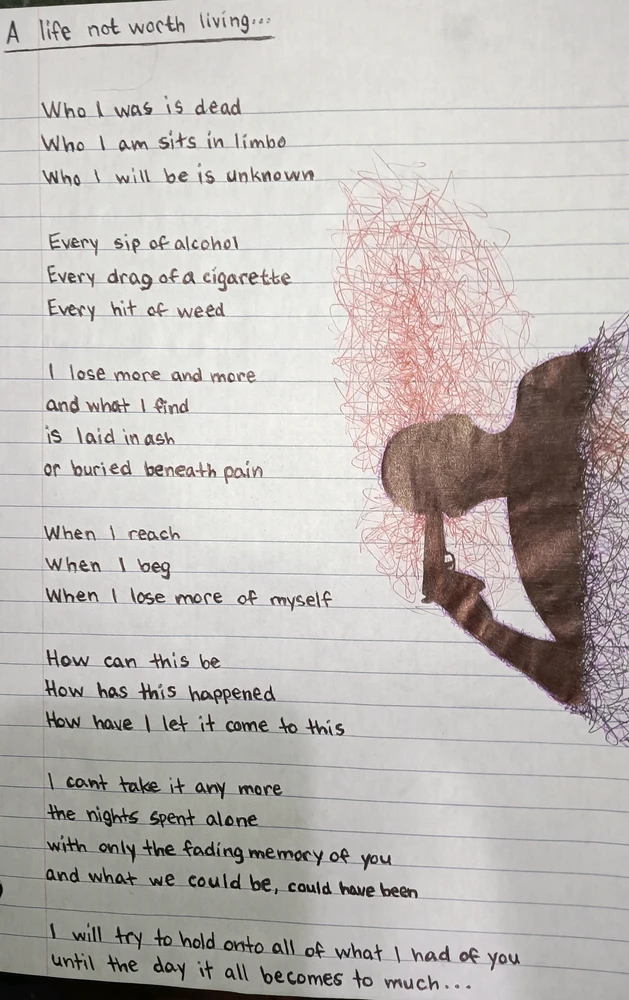 A life not worth living...
Who I was is dead
Who I am sits in limbo
Who I will be is unknown
Every sip of alcohol
Every drag of a cigarette
Every hit of weed
I lose more and more
and what I find
is laid in ash
or buried beneath pain
When I reach
When I beg
When I lose more of myself
How can this be
How has this happened
How have I let it come to this
I cant take it any more
the nights spent alone
with only the fading memory of you
and what we could be, could have been
I will try to hold onto all of what I had of you
until the day it all becomes to much...